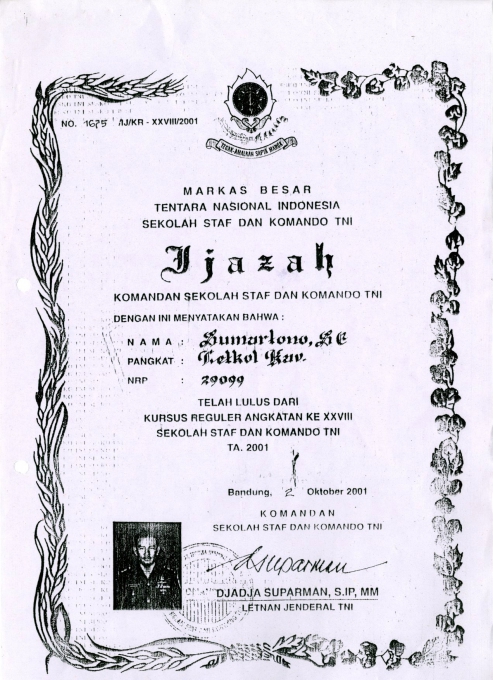 NO. 1675 /IJ/KR - XXVIII/2001
MARKAS BESAR
TENTARA NASIONAL INDONESIA
SEKOLAH STAF DAN KOMANDO TNI
Ijazah
KOMANDAN SEKOLAH STAF DAN KOMANDO TNI
DENGAN INI MENYATAKAN BAHWA :
NAMA : Sumartono, SE
PANGKAT : Letkol Kav.
NRP : 29099
TELAH LULUS DARI
KURSUS REGULER ANGKATAN KE XXVIII
SEKOLAH STAF DAN KOMANDO TNI
TA. 2001
Bandung, 2 Oktober 2001
KOMANDAN
SEKOLAH STAF DAN KOMANDO TNI
DJADJA SUPARMAN, S.IP, MM
LETNAN JENDERAL TNI